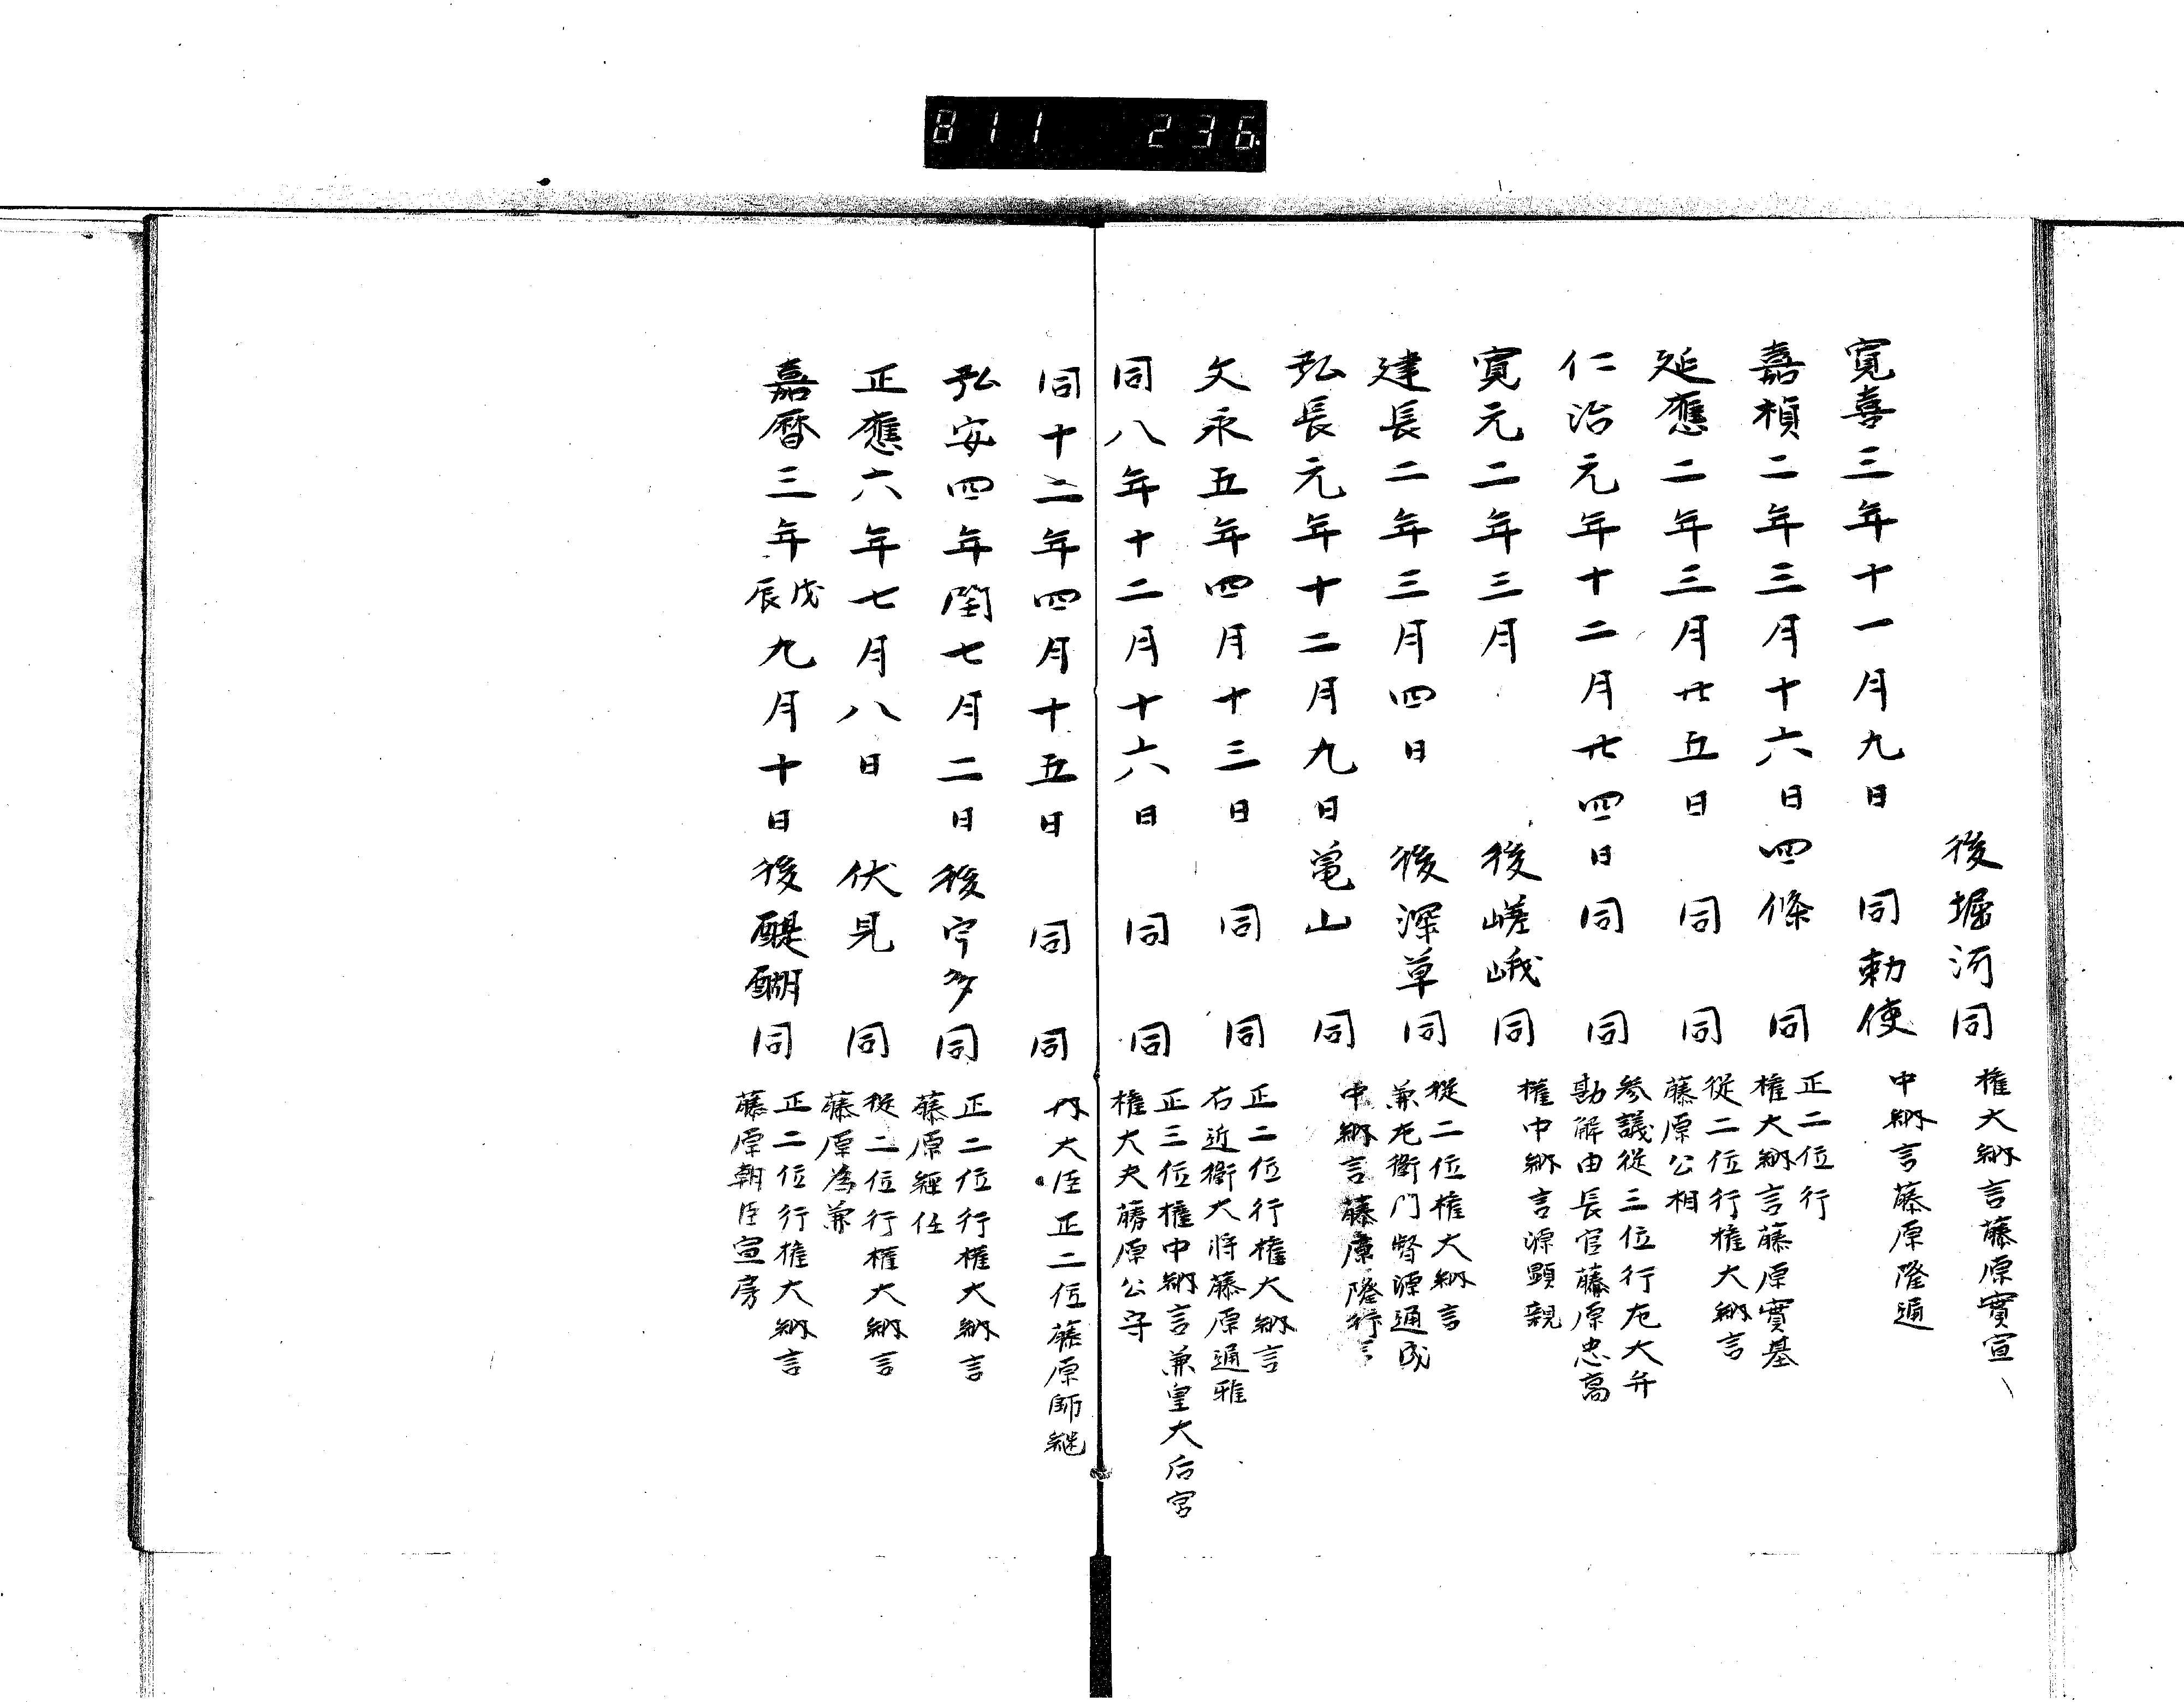 811 236
後堀河同 權大納言藤原實宣
寛喜三年十一月九日 同勅使 中納言藤原隆通
嘉禎二年三月十六日四條 同 正二位行
權大納言藤原實基
延應二年三月廿五日 同 同 從二位行權大納言
藤原公相
仁治元年十二月廿四日 同 同 参議從三位行左大弁
勘解由長官藤原忠高
寛元二年三月 後嵯峨同 權中納言源顯親
建長二年三月四日 後深草同 從二位權大納言
兼左衛門督源通成
弘長元年十二月九日亀山 同 中納言藤原隆行
文永五年四月十三日 同 同 正二位行權大納言
右近衛大将藤原通雅
同八年十二月十六日 同 同 正三位權中納言兼皇大后宮
權大夫藤原公守
同十二年四月十五日 同 同 内大臣正二位藤原師継
弘安四年閏七月二日 後宇多同 正二位行權大納言
藤原經任
正應六年七月八日 伏見 同 從二位行權大納言
藤原為兼
嘉暦三年戊辰九月十日後醍醐同 正二位行權大納言
藤原朝臣宣房